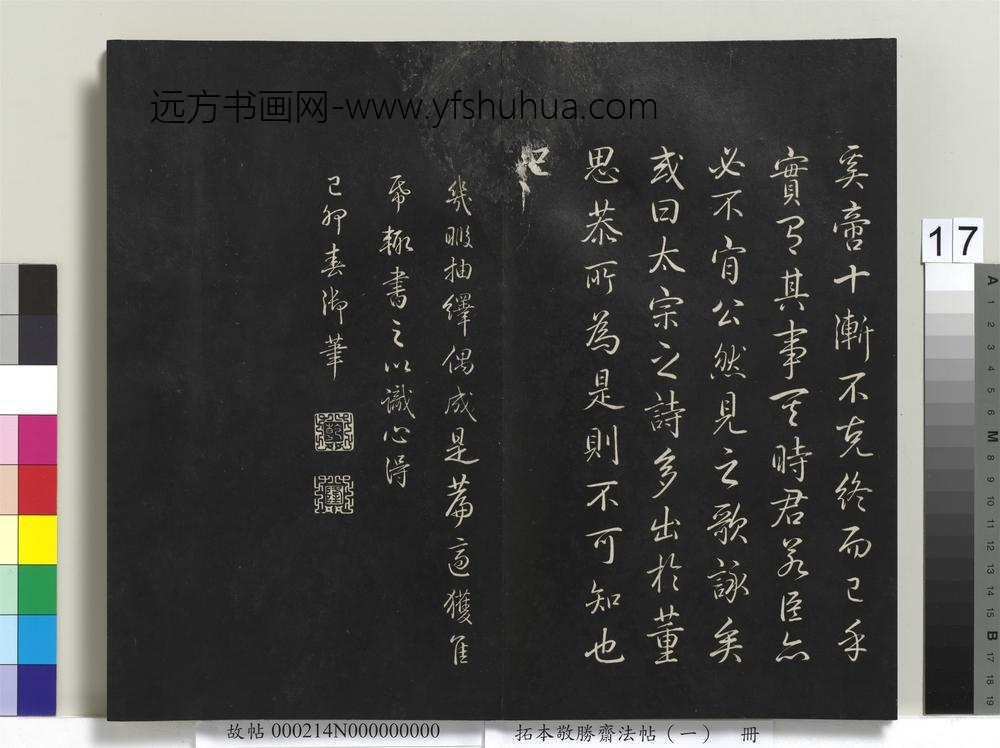 奚啻十漸不克終而已乎
實有其事其時君若臣亦
必不肯公然見之歌詠矣
或曰太宗之詩多出於董
思恭所為是則不可知也
幾暇抽繹偶成是篇適獲佳
帋輒書之以識心得
己卯春御筆
远方书画网-www.yfshuhua.com
17
A 1 2 3 4 5 6 M 8 9 10 11 12 13 14 15 B 17 18 19
故帖 000214N000000000
拓本敬勝齋法帖（一） 冊